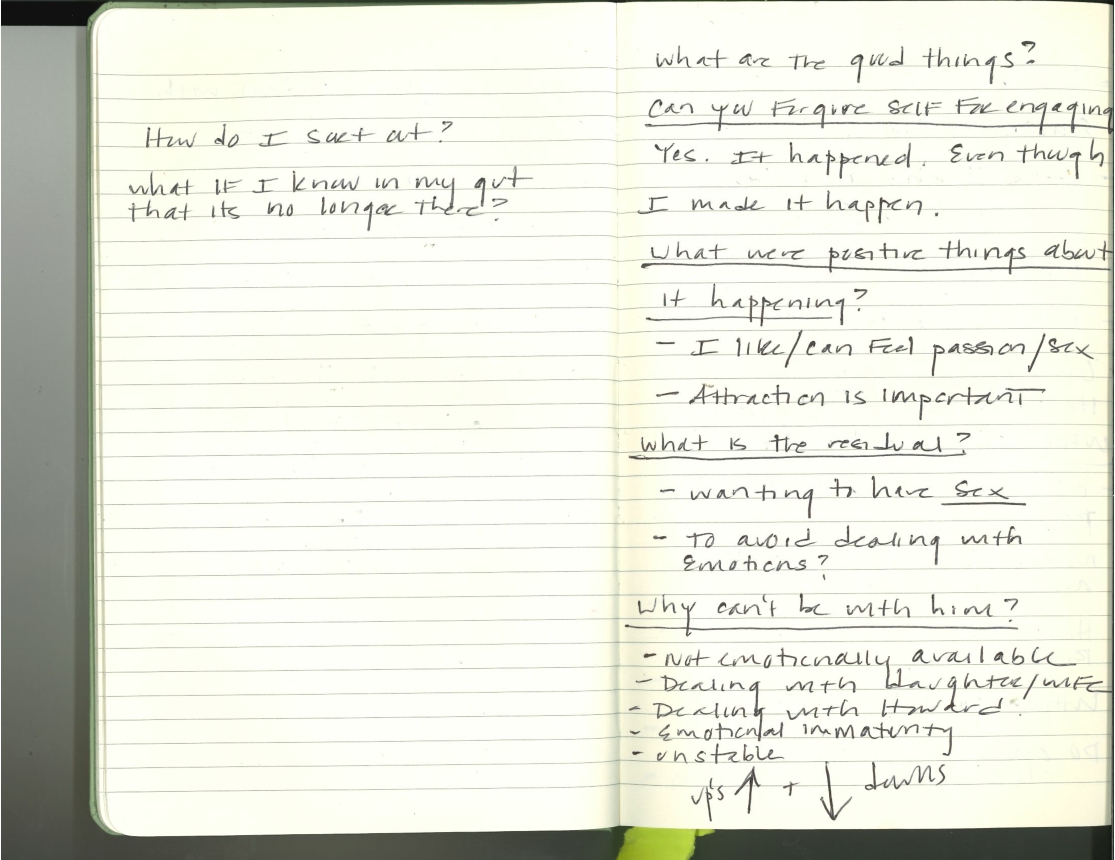 How do I sort out?
what IF I know in my gut
that its no longer there?
what are the good things?
Can you Forgive SELF For engaging
Yes. It happened. Even though
I made it happen.
what were positive things about
it happening?
- I like/can Feel passion/sex
- Attraction is important
what is the residual?
- wanting to have sex
- To avoid dealing with
Emotions?
Why can't be with him?
- Not emotionally available
- Dealing with daughter/wife
- Dealing with Howard.
- Emotional immaturity
- unstable
up's ↑ + ↓ downs